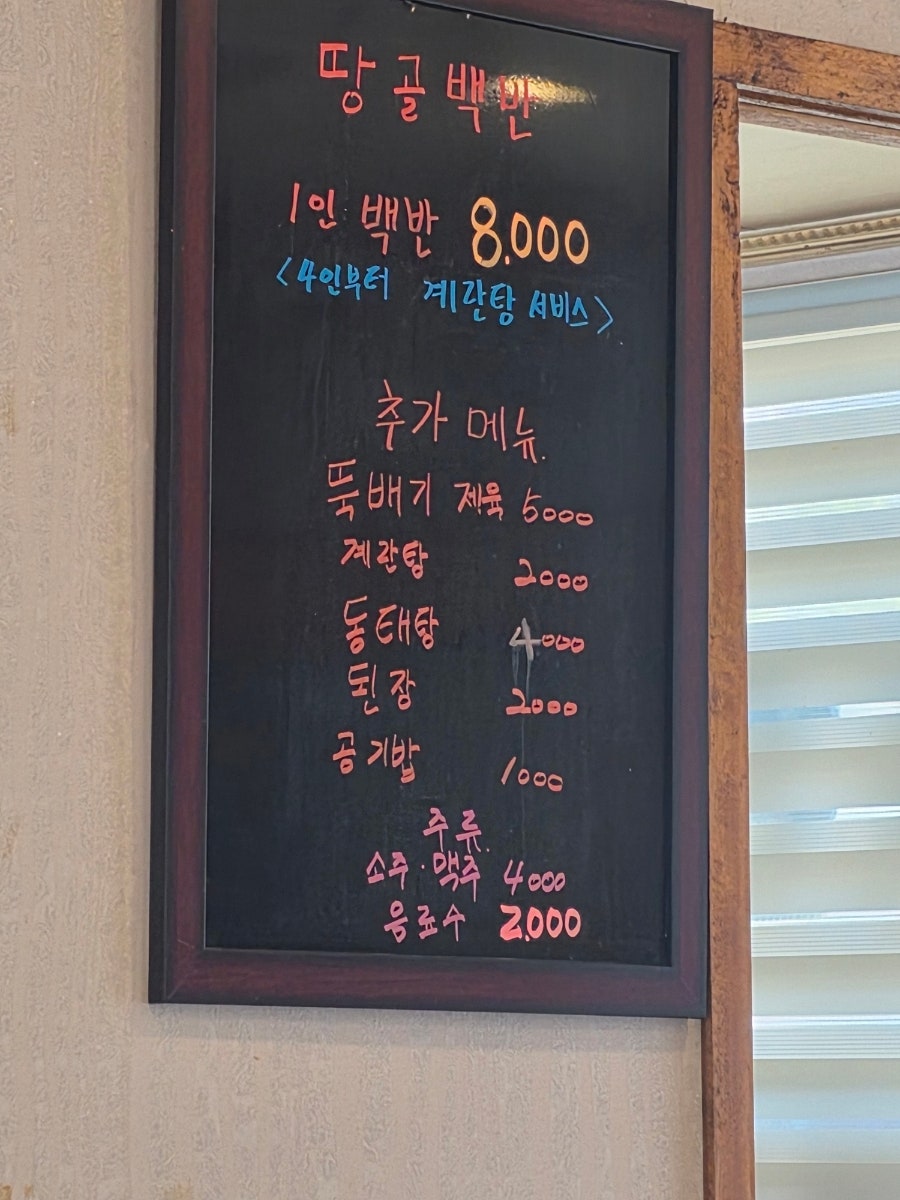 땅골백반
1인 백반 8.000
<4인부터 계란탕 서비스>
추가 메뉴.
뚝배기 제육 5000
계란탕 2000
동태탕 4000
된장 2000
공기밥 1000
주류.
소주·맥주 4000
음료수 2.000